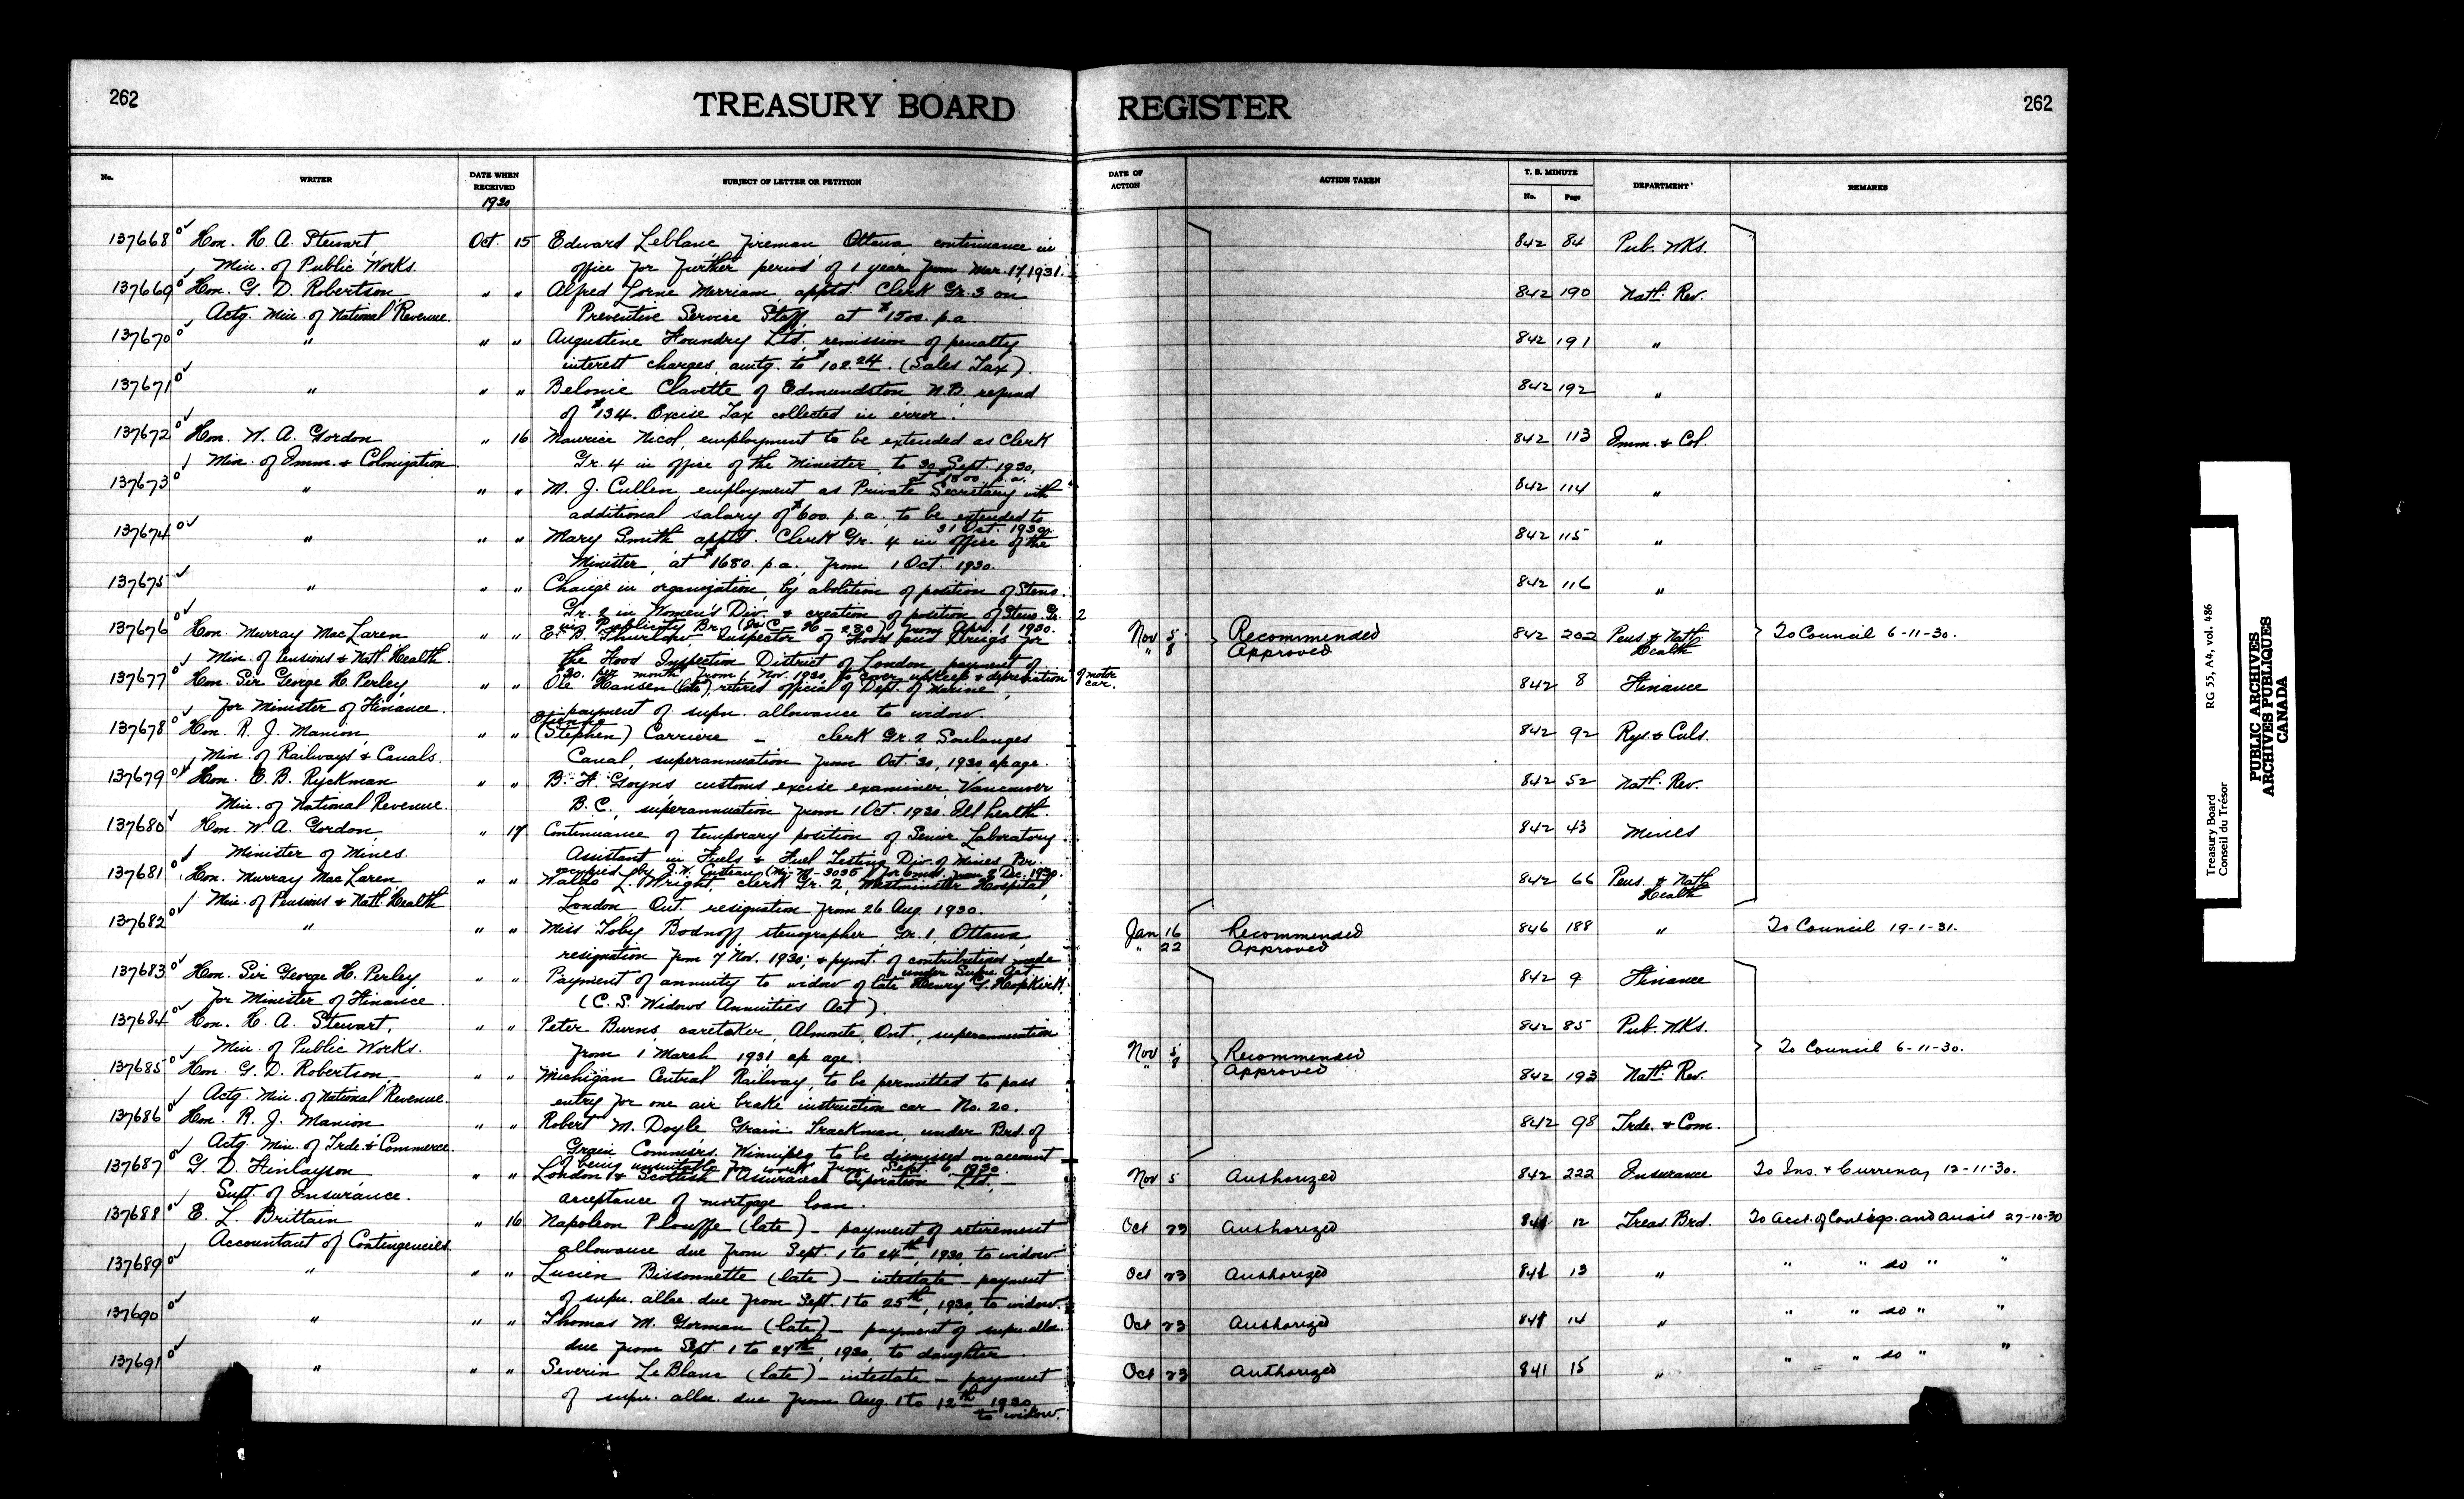 262
TREASURY BOARD REGISTER
262
No. WRITER DATE WHEN RECEIVED SUBJECT OF LETTER OR PETITION DATE OF ACTION ACTION TAKEN T. B. MINUTE No. Page DEPARTMENT REMARKS
1930
137668 Hon. H. A. Stewart Oct. 15 Edward Leblanc fireman Ottawa continuance in 842 84 Pub. Wks.
Min. of Public Works. office for further period of 1 year from Mar. 17, 1931.
137669 Hon. G. D. Robertson " " Alfred Lorne Merriam, apptd. Clerk Gr. 3 on 842 190 Natl. Rev.
Actg. Min. of National Revenue. Preventive Service Staff, at $1500. p.a.
137670 " " " Augustine Foundry Ltd, remission of penalty 842 191 "
interest charges, amtg. to $102.24. (Sales Tax).
137671 " " " Belonie Clavette of Edmundston, N.B. refund 842 192 "
of $134. Excise Tax collected in error.
137672 Hon. W. A. Gordon " 16 Maurice Nicol, employment to be extended as Clerk 842 113 Imm. & Col.
Min. of Imm. & Colonization Gr. 4 in office of the Minister, to 30 Sept. 1930,
at $1800. p.a.
137673 " " " M. J. Cullen, employment as Private Secretary with 842 114 "
additional salary of $600. p.a. to be extended to
31 Oct. 1930.
137674 " " " Mary Smith apptd. Clerk Gr. 4 in office of the 842 115 "
Minister, at $1680. p.a. from 1 Oct. 1930.
137675 " " " Change in organization, by abolition of position of Steno. 842 116 "
Gr. 2 in Women's Div. & creation of position of Steno. Gr. 2
in Publicity Br. from Apr. 1, 1930.
137676 Hon. Murray MacLaren " " E. B. Thurlow Inspector of Foods and Drugs for Nov 5 Recommended 842 202 Pens. & Natl. Health To Council 6-11-30.
" 8 Approved
Min. of Pensions & Natl. Health. the Food Inspection District of London, payment of
$20. per month from 1 Nov. 1930, to cover upkeep & depreciation of motor car.
137677 Hon. Sir George H. Perley, " " Ole Hansen (late), retired official of Dept. of Marine, 842 8 Finance
for Minister of Finance. payment of supn. allowance to widow.
137678 Hon. R. J. Manion, " " Etienne (Stephen) Carriere - clerk Gr. 2 Soulanges 842 92 Rys. & Cnls.
Min. of Railways & Canals. Canal, superannuation from Oct. 30, 1930, ap age.
137679 Hon. E. B. Ryckman " " B. H. Goyns customs excise examiner, Vancouver 842 52 Natl. Rev.
Min. of National Revenue. B.C., superannuation from 1 Oct. 1930. Ill health.
137680 Hon. W. A. Gordon " 17 Continuance of temporary position of Senior Laboratory 842 43 Mines
Minister of Mines. Assistant in Fuels & Fuel Testing Div. of Mines Br.
occupied by J. W. Custeau for 6 mos. from 2 Dec. 1930.
137681 Hon. Murray MacLaren " " Waldo L. Wright, clerk Gr. 2, Westminster Hospital, 842 66 Pens. & Natl. Health
Min. of Pensions & Natl. Health London Ont. resignation from 26 Aug. 1930.
137682 " " " Miss Toby Bodnoff, stenographer, Gr. 1, Ottawa, Jan 16 Recommended 846 188 " To Council 19-1-31.
" 22 Approved
resignation from 7 Nov. 1930; & pymt. of contributions made
under Supn. Act.
137683 Hon. Sir George H. Perley, " " Payment of annuity to widow of late Henry G. Hopkirk, 842 9 Finance
for Minister of Finance. (C. S. Widows Annuities Act).
137684 Hon. H. A. Stewart, " " Peter Burns, caretaker, Almonte, Ont., superannuation 842 85 Pub. Wks.
Min. of Public Works. from 1 March 1931 ap age. Nov 5 Recommended To Council 6-11-30.
" 8 Approved
137685 Hon. G. D. Robertson " " Michigan Central Railway, to be permitted to pass 842 193 Natl. Rev.
Actg. Min. of National Revenue. entry for one air brake instruction car No. 20.
137686 Hon. R. J. Manion " " Robert M. Doyle Grain Trackman, under Brd. of 842 98 Trde. & Com.
Actg. Min. of Trde. & Commerce. Grain Commrs. Winnipeg to be dismissed on account
of being unsuitable for work from Sept. 6, 1930.
137687 G. D. Finlayson " " London & Scottish Assurance Corporation Ltd, - Nov 5 Authorized 842 222 Insurance To Ins. & Currency 12-11-30.
Supt. of Insurance. acceptance of mortgage loan.
137688 E. L. Brittain " 16 Napoleon Plouffe (late) - payment of retirement Oct 23 Authorized 841 12 Treas. Brd. To Acct. of Contings. and Audit 27-10-30
Accountant of Contingencies. allowance due from Sept. 1 to 24th, 1930, to widow.
137689 " " " Lucien Bissonnette (late) - intestate - payment Oct 23 Authorized 841 13 " " " do " "
of supn. allce. due from Sept. 1 to 25th, 1930, to widow.
137690 " " " Thomas M. Gorman (late) - payment of supn. allce. Oct 23 Authorized 841 14 " " " do " "
due from Sept. 1 to 27th, 1930, to daughter.
137691 " " " Severin LeBlanc (late) - intestate - payment Oct 23 Authorized 841 15 " " " do " "
of supn. allce. due from Aug. 1 to 12th 1930,
to widow.
Treasury Board RG 55, A4, vol. 486
Conseil du Trésor
PUBLIC ARCHIVES
ARCHIVES PUBLIQUES
CANADA